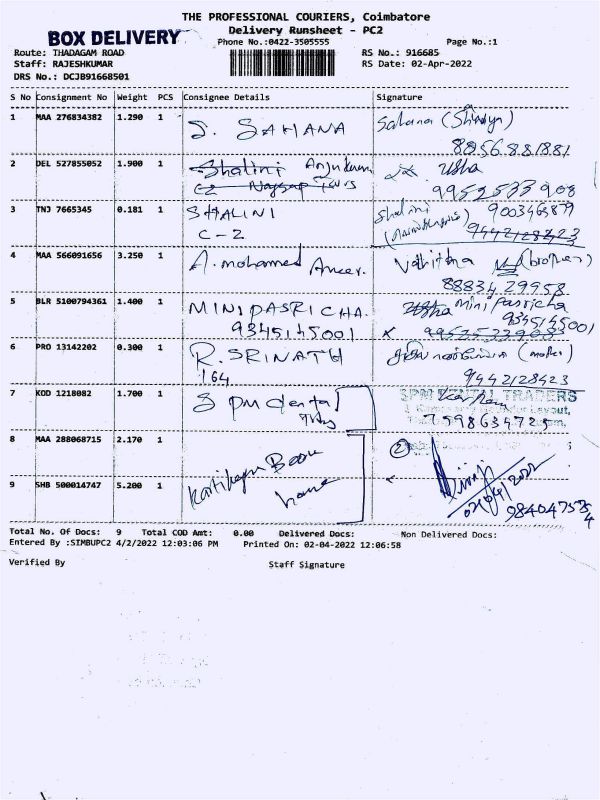 THE PROFESSIONAL COURIERS, Coimbatore
BOX DELIVERY
Delivery Runsheet - PC2
Phone No.:0422-3505555
Page No.:1
Route: THADAGAM ROAD
RS No.: 916685
Staff: RAJESHKUMAR
RS Date: 02-Apr-2022
DRS No.: DCJB91668501
S No Consignment No Weight PCS Consignee Details Signature
1 MAA 276834382 1.290 1 S. SAHANA Sahana
8856881881
2 DEL 527855052 1.900 1 Shalini Usha
C2 9952533908
3 TNJ 7665345 0.181 1 SHALINI Shalini
C-2 9442128423
4 MAA 566091656 3.250 1 A. mohammed (brother)
8883429958
5 BLR 5100794361 1.400 1 MINI PASRICHA Usha mini Pasricha
9345145001 9345145001
9952533908
6 PRO 13142202 0.300 1 R. SRINATH (mother)
164 9442128423
7 KOD 1218082 1.700 1 SPM dental SPM DENTAL TRADERS
7598634725
8 MAA 288068715 2.170 1 2
9 SHB 500014747 5.200 1
Total No. Of Docs: 9 Total COD Amt: 0.00 Delivered Docs: Non Delivered Docs:
Entered By :SIMBUPC2 4/2/2022 12:03:06 PM Printed On: 02-04-2022 12:06:58
Verified By Staff Signature